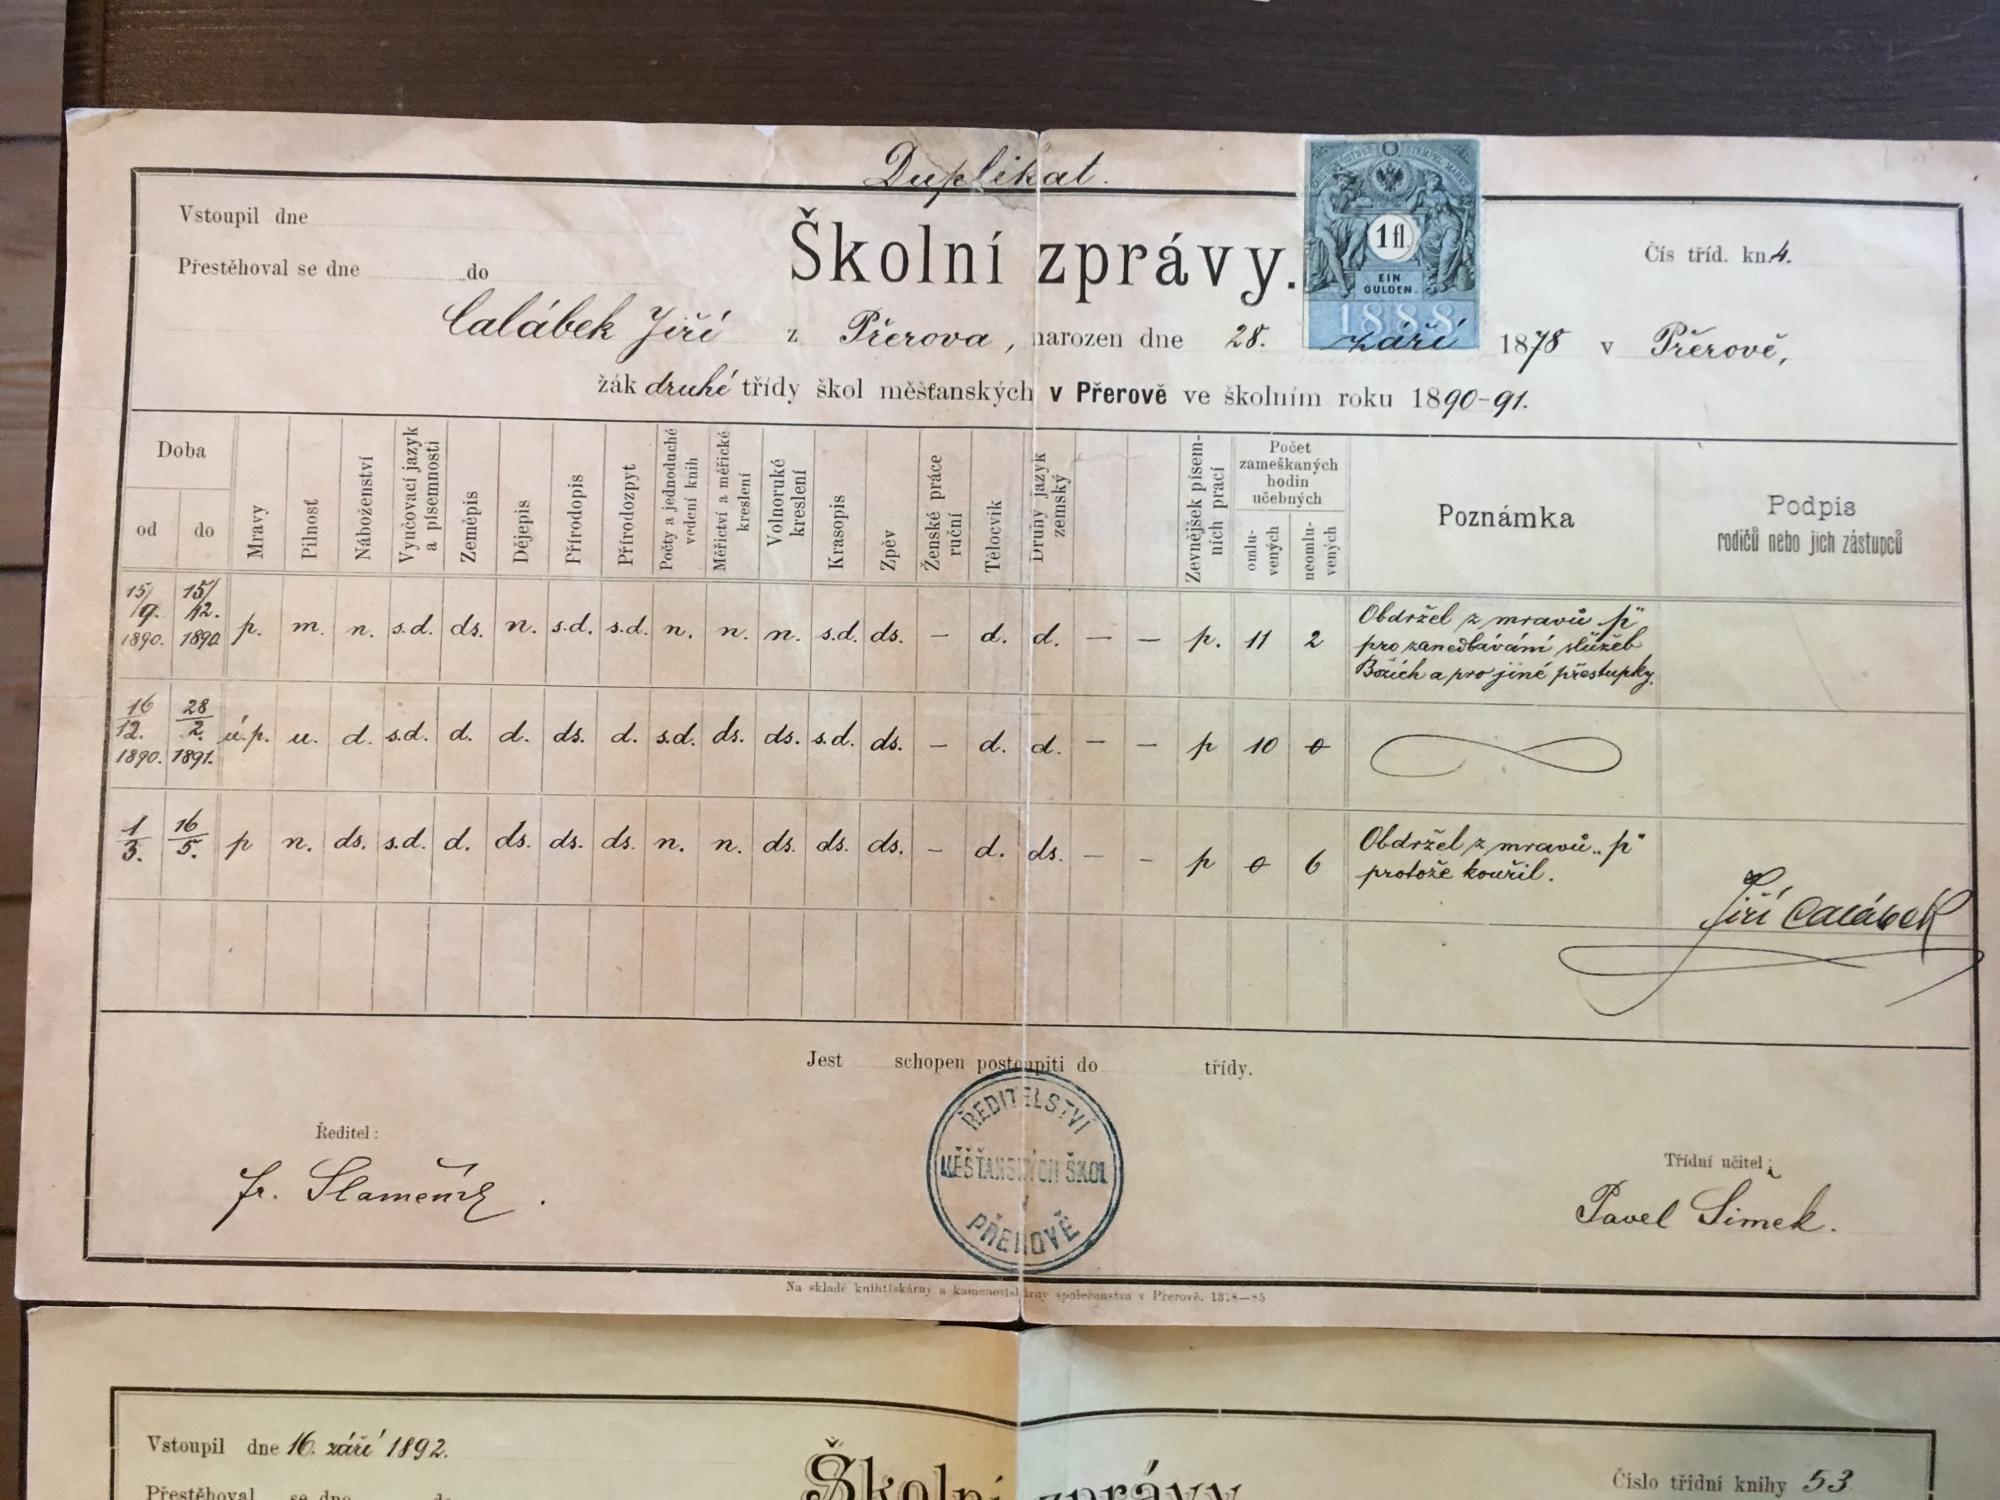 Duplikat.
Vstoupil dne
Školní zprávy.
1 fl.
EIN
GULDEN.
1888
Čís tříd. kn. 4.
Přestěhoval se dne do
Calábek Jiří z Přerova, narozen dne 28. září 1878 v Přerově,
žák druhé třídy škol měšťanských v Přerově ve školním roku 1890-91.
Doba
od do
Mravy
Pilnosť
Náboženství
Vyučovací jazyk a písemnosti
Zeměpis
Dějepis
Přírodopis
Přírodozpyt
Počty a jednoduché vedení knih
Měřictví a měřické kreslení
Volnoruké kreslení
Krasopis
Zpěv
Ženské práce ruční
Tělocvik
Druhý jazyk zemský
Zevnějšek písemních prací
Počet
zameškaných
hodin
učebných
omluvených
neomluvených
Poznámka
Podpis
rodičů nebo jich zástupců
15/9. 1890. 15/12. 1890 p. m. n. s.d. ds. n. s.d. s.d. n. n. n. s.d. ds. – d. d. – – p. 11 2 Obdržel z mravů „p"
pro zanedbávání služeb
Božích a pro jiné přestupky.
16/12. 1890. 28/2. 1891. ú.p. u. d. s.d. d. d. ds. d. s.d. ds. ds. s.d. ds. – d. d. – – p 10 0
1/3. 16/5. p n. ds. s.d. d. ds. ds. ds. n. n. ds. ds. ds. – d. ds. – – p 0 6 Obdržel z mravů „p"
protože kouřil.
Jiří Calábek
Jest schopen postoupiti do třídy.
ŘEDITELSTVÍ
MĚŠŤANSKÝCH ŠKOL
V
PŘEROVĚ
Ředitel:
Fr. Slameník.
Třídní učitel:
Pavel Šimek.
Na skladě knihtiskárny a kamenotiskárny společenstva v Přerově.
Vstoupil dne 16. září 1892.
Školní zprávy
Číslo třídní knihy 53
Přestěhoval se dne do